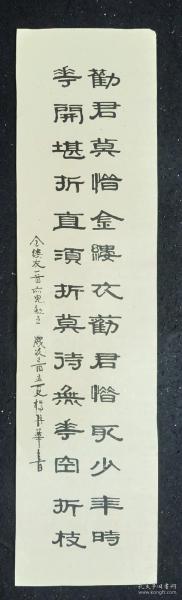 勸君莫惜金縷衣勸君惜取少年時
華開堪折直須折莫待無華空折枝
金縷衣一首